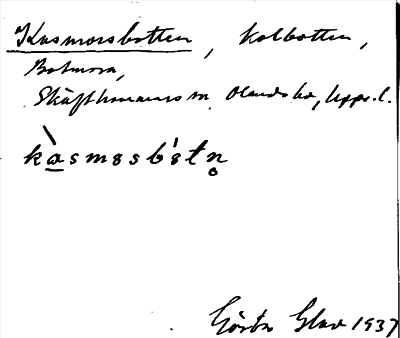 Kasmorsbotten, kolbotten,
Botmora,
Skäfthammars sn. Olands hd, Upps. l.
kasmosbotn
Gösta 1937